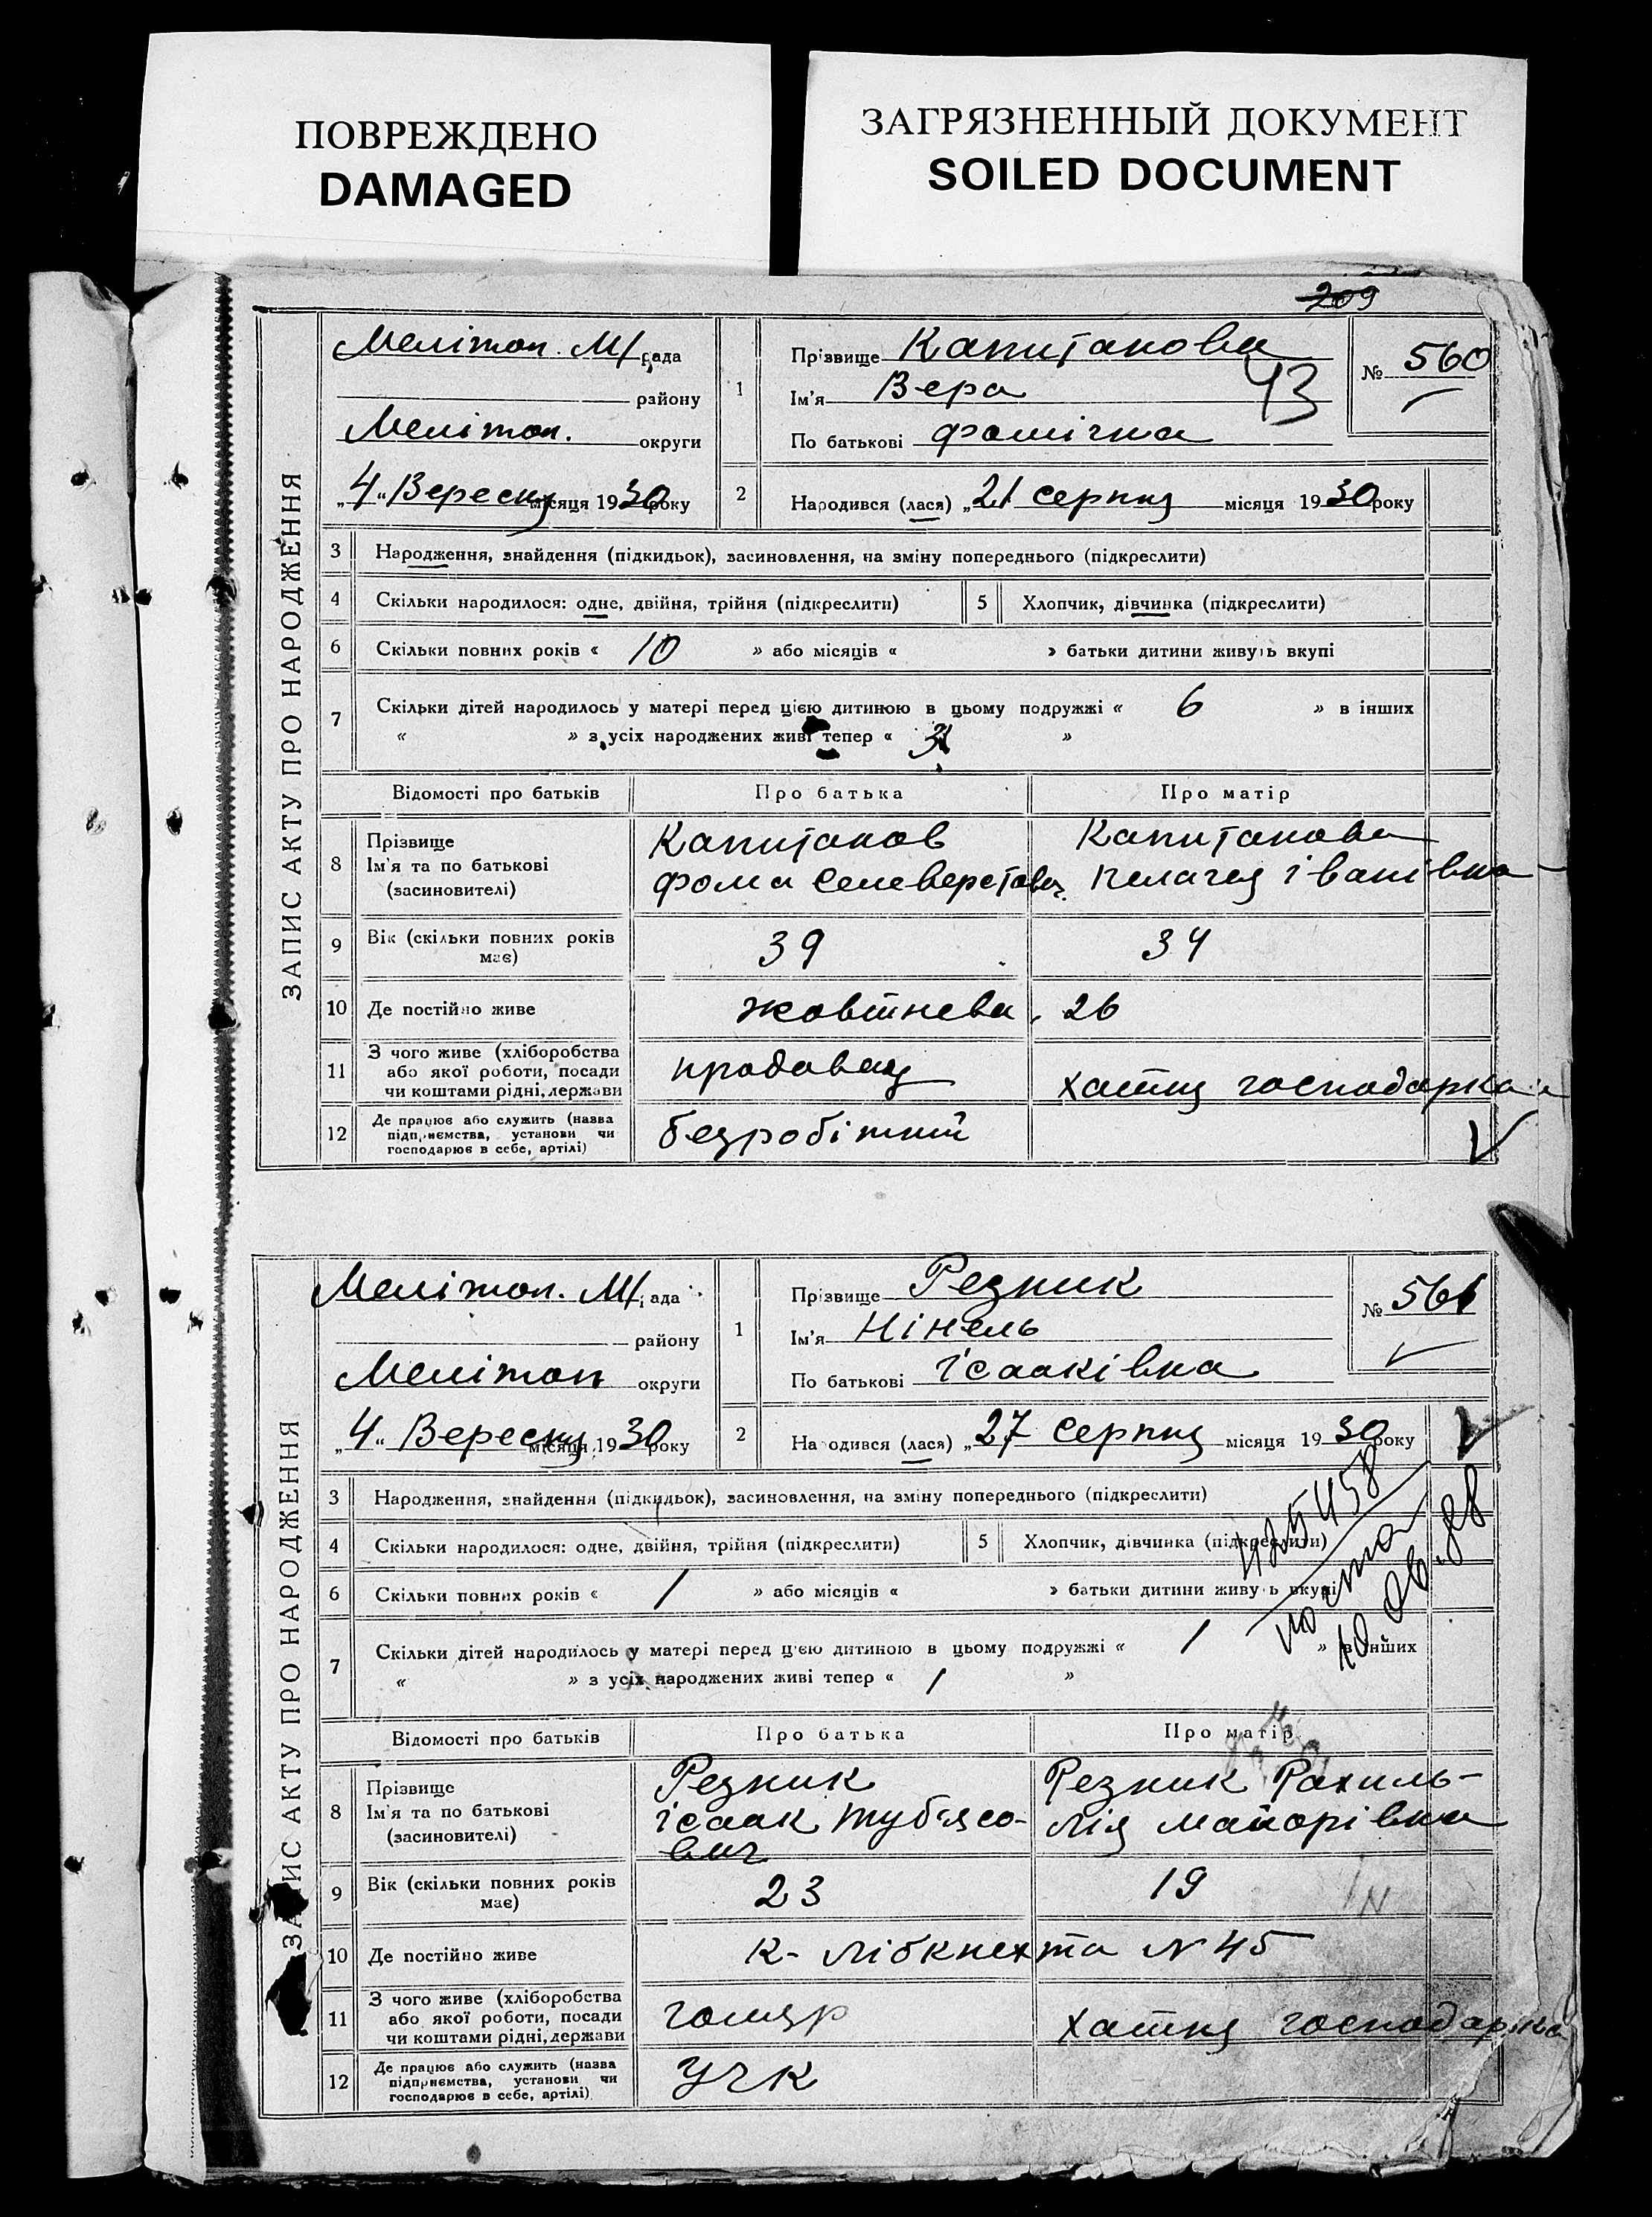 ПОВРЕЖДЕНО
DAMAGED
ЗАГРЯЗНЕННЫЙ ДОКУМЕНТ
SOILED DOCUMENT
209
ЗАПИС АКТУ ПРО НАРОДЖЕННЯ
Меліто́п. М/рада
району
Меліто́п. округи
„4“ Вересня місяця 1930 року
1
Прізвище Капитанова
Ім'я Вера
43
По батькові Фомічна
№ 560
2
Народився (лася) „21 серпня місяця 1930 року
3 Народження, знайдення (підкидьок), засиновлення, на зміну попереднього (підкреслити)
4 Скільки народилося: одне, двійня, трійня (підкреслити) 5 Хлопчик, дівчинка (підкреслити)
6 Скільки повних років « 10 » або місяців « » батьки дитини живуть вкупі
7 Скільки дітей народилось у матері перед цією дитиною в цьому подружжі « 6 » в інших
« » з усіх народжених живі тепер « 3 »
Відомості про батьків Про батька Про матір
8 Прізвище
Ім'я та по батькові
(засиновителі)
Капитанов
Фома Селеверстович
Капитанова
Пелагея Іванівна
9 Вік (скільки повних років
має)
39 34
10 Де постійно живе Жовтнева, 26
11 З чого живе (хліборобства
або якої роботи, посади
чи коштами рідні, держави
продавец хатня господарка
12 Де працює або служить (назва
підприємства, установи чи
господарює в себе, артілі)
безробітний
ЗАПИС АКТУ ПРО НАРОДЖЕННЯ
Меліто́п. М/рада
району
Мелітоп округи
„4“ Вересня місяця 1930 року
1
Прізвище Резник
Ім'я Нінель
По батькові Ісааківна
№ 561
2
Народився (лася) „27 серпня місяця 1930 року
3 Народження, знайдення (підкидьок), засиновлення, на зміну попереднього (підкреслити)
4 Скільки народилося: одне, двійня, трійня (підкреслити) 5 Хлопчик, дівчинка (підкреслити)
6 Скільки повних років « 1 » або місяців « » батьки дитини живуть вкупі
7 Скільки дітей народилось у матері перед цією дитиною в цьому подружжі « 1 » в інших
« » з усіх народжених живі тепер « 1 »
Відомості про батьків Про батька Про матір
8 Прізвище
Ім'я та по батькові
(засиновителі)
Резник
Ісаак Тубясо-
вич
Резник Рахиль-
Лія Майорівна
9 Вік (скільки повних років
має)
23 19
10 Де постійно живе К- Лібкнехта N 45
11 З чого живе (хліборобства
або якої роботи, посади
чи коштами рідні, держави
голяр хатня господарка
12 Де працює або служить (назва
підприємства, установи чи
господарює в себе, артілі)
УЧК